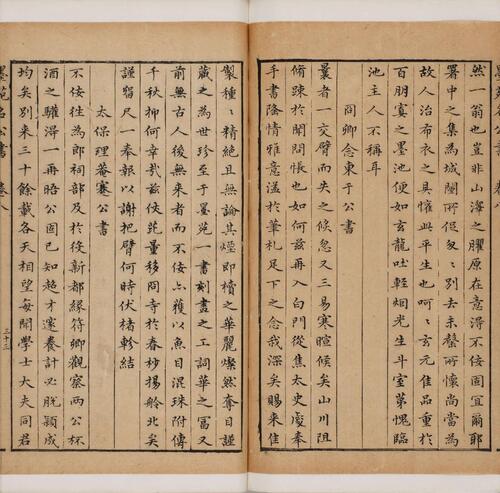 然一翁也豈非山海之膠原在意得不佞固宜爾耶
署中之集為城闉所促匆匆別去未罄所懷尚當為
故人治布衣之具懽此平生也呵呵玄元佳品重於
百朋寘之墨池便如玄龍吐輕烟光生斗室第愧臨
池主人不稱耳
冏卿念東于公書
曩者一交臂而失之候忽又三易寒暄候矣山川阻
脩踈於聞問悵也如何茲再入白門從焦太史處奉
手書隆情雅意溢於華札足下之念我深矣賜來佳
製種種精絕且無論其煙即櫝之華麗燦然奪目謹
藏之為世珍至于墨苑一書刻畫之工詞華之冨又
前無古人後無來者而不佞亦獲以魚目混珠附傳
千秋抑何幸哉茲量移冏寺於春杪揚舲北矣
謹留尺一奉報以謝把臂何時伏楮軫結
太保理菴蹇公書
不佞往為郎祠部及於役新都緣符卿觀察兩公杯
酒之驩得一再晤公固已知超才邃養計必脫穎成
均矣別來三十餘載各天相望每聞學士大夫同君
墨苑名公書 卷八 三十三